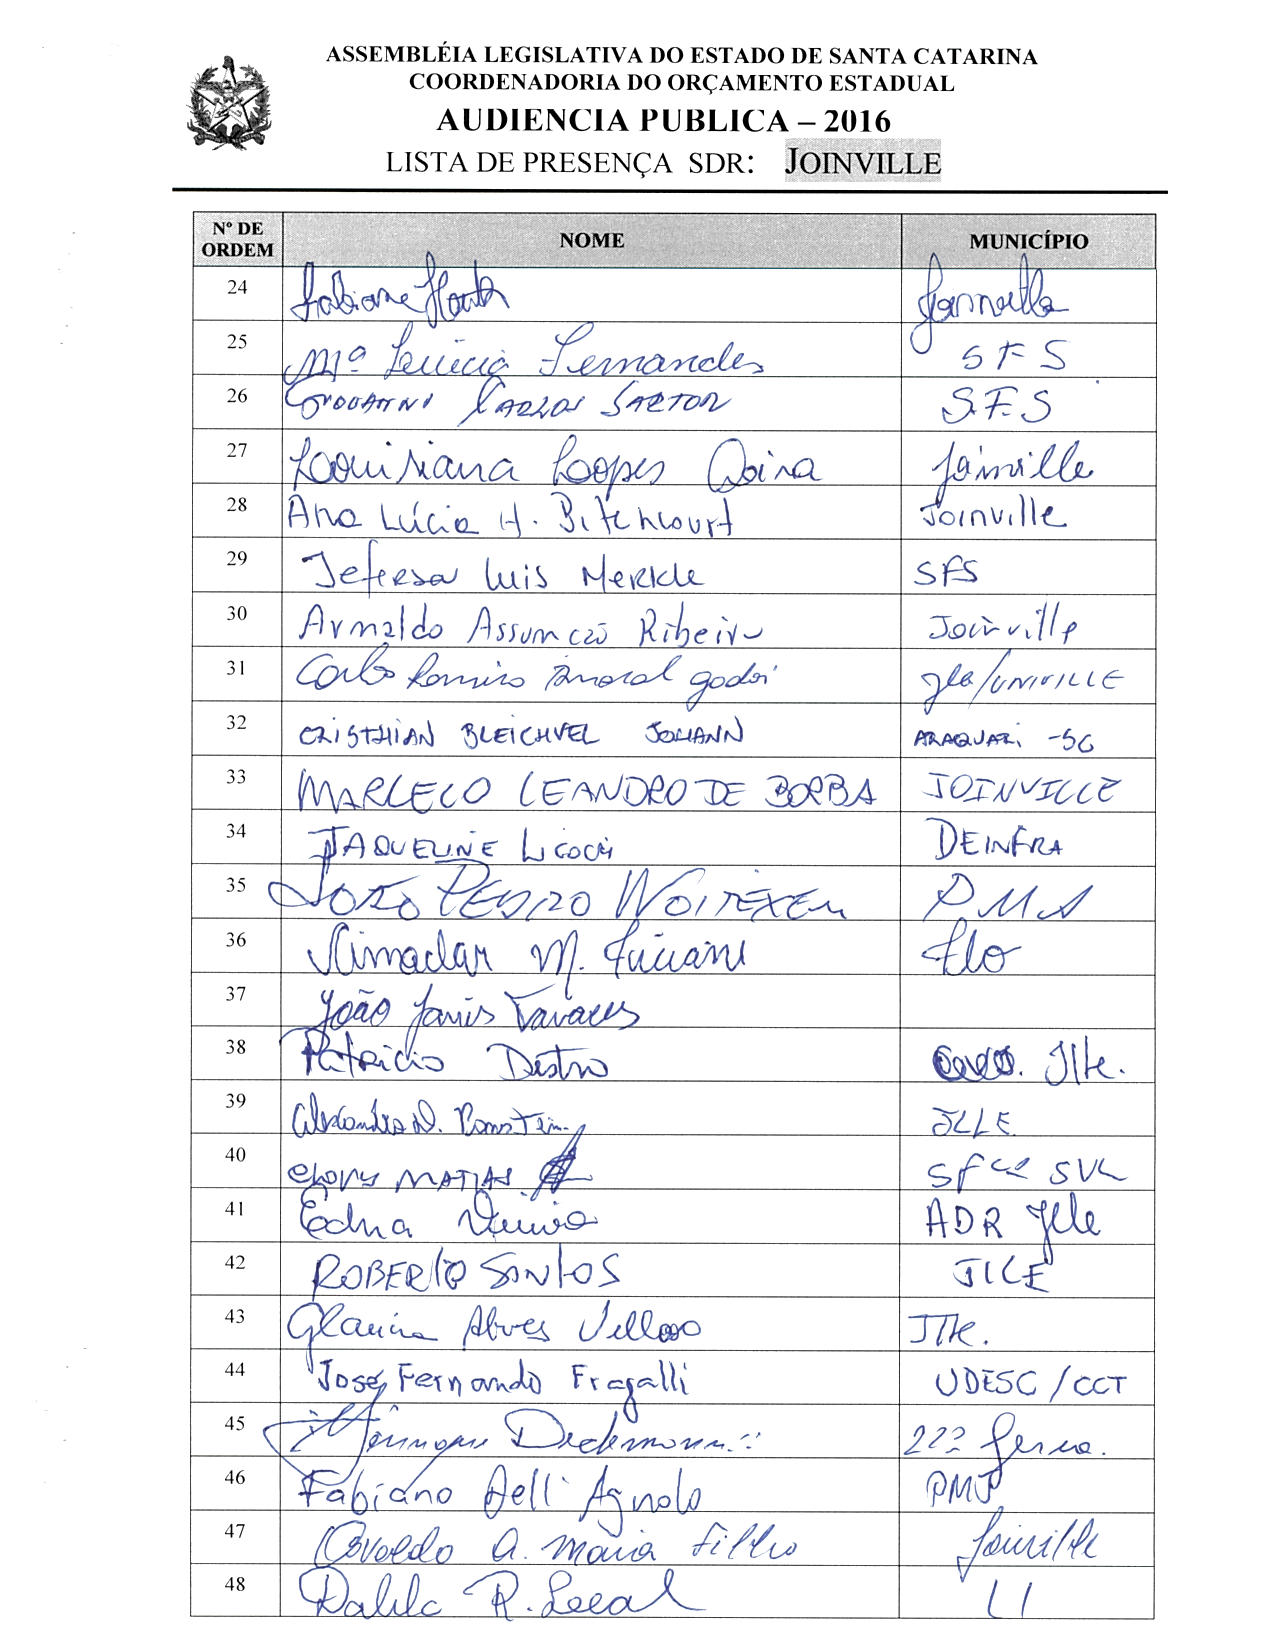 ASSEMBLÉIA LEGISLATIVA DO ESTADO DE SANTA CATARINA
COORDENADORIA DO ORÇAMENTO ESTADUAL
AUDIENCIA PUBLICA – 2016
LISTA DE PRESENÇA SDR: JOINVILLE
Nº DE ORDEM NOME MUNICÍPIO
24 Fabiane Joinville
25 Mª Lucia Fernandes SFS
26 Giovanni Carlos Sartor S.F.S
27 Louisiana Loopes Joinville
28 Ana Lúcia H. Bitencourt Joinville
29 Jeferson Luis Merkle SFS
30 Arnaldo Assunção Ribeiro Joinville
31 Carlos Ramiro Amaral Godoi Jlle/UNIVILLE
32 CRISTHIAN BLEICHVEL JOHANN ARAQUARI -SC
33 MARCELO LEANDRO DE BORBA JOINVILLE
34 JAQUELINE DEINFRA
35 JOÃO PEDRO WOITEXEM PMA
36 M.
37 João Janis Tavares
38 Patricio Destro Jlle.
39 JLLE
40 MATIAS
41 Edna Vieira ADR Jlle
42 ROBERTO SANTOS JLLE
43 Glaucia Alves Velloso Jlle.
44 José Fernando Fragalli UDESC/CCT
45 Henrique
46 Fabiano Dell' Agnolo PMJ
47 Osvaldo A. Maria Filho Joinville
48 Dalila R. Leal L1